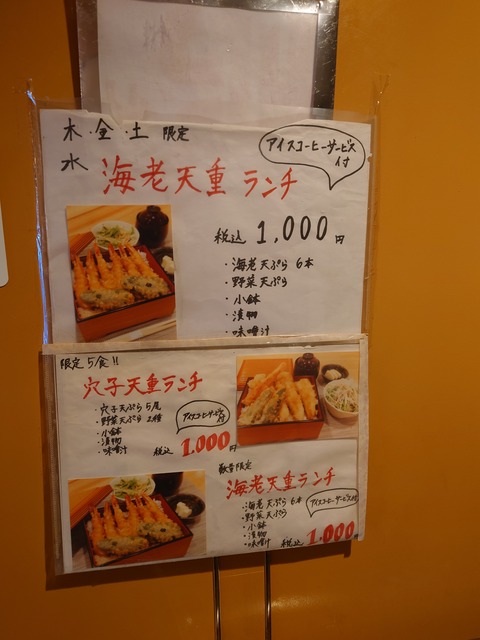 木・金・土 限定
水
アイスコーヒーサービス付
海老天重ランチ
税込 1,000円
・海老天ぷら 6本
・野菜天ぷら
・小鉢
・漬物
・味噌汁
限定 5食!!
穴子天重ランチ
・穴子天ぷら 5尾
・野菜天ぷら 2種
・小鉢
・漬物
・味噌汁
アイスコーヒーサービス付
税込 1,000円
数量限定
海老天重ランチ
・海老天ぷら 6本
・野菜天ぷら
・小鉢
・漬物
・味噌汁
アイスコーヒーサービス付
税込 1,000円